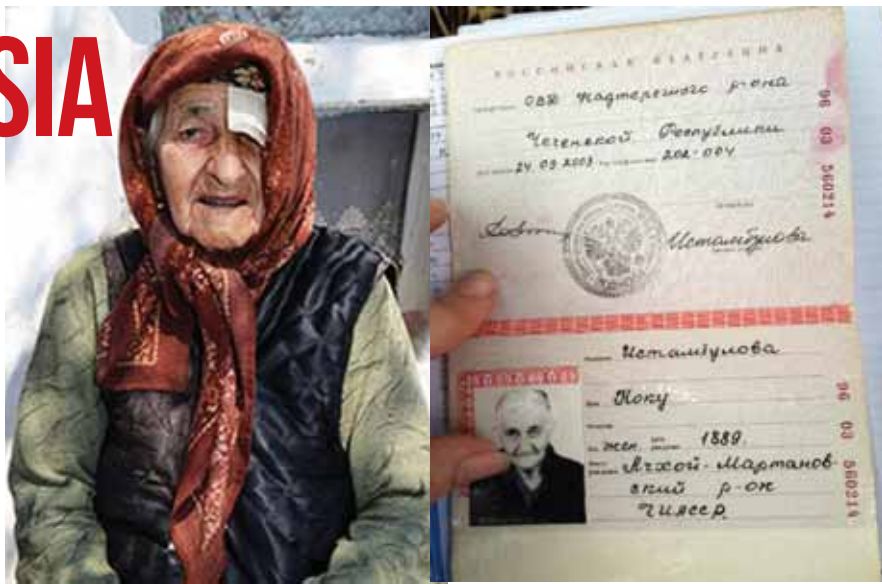 SIA
РОССИЙСКАЯ ФЕДЕРАЦИЯ
ОВД Надтеречного р-она
Чеченской Республики
24.09.2003 202-004
Истамбулова
Истамбулова
Коку
жен. 1889.
Ачхой-Мартанов-
ский р-он
ЧИАССР
96 03 560214
96 03 560214